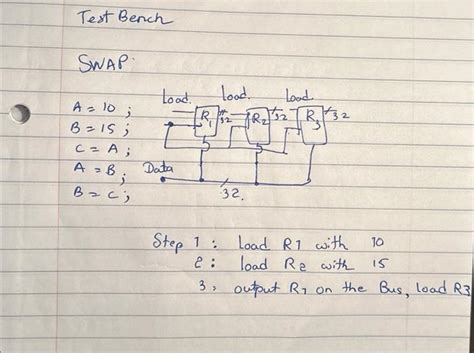 Test Bench
SWAP.
Load. Load. Load
A = 10 ;
R1 32 R2 32 R3 32
B = 15 ;
C = A ;
A = B ; Data
B = C ; 32.
Step 1 : load R1 with 10
2 : load R2 with 15
3 : output R1 on the Bus, load R3